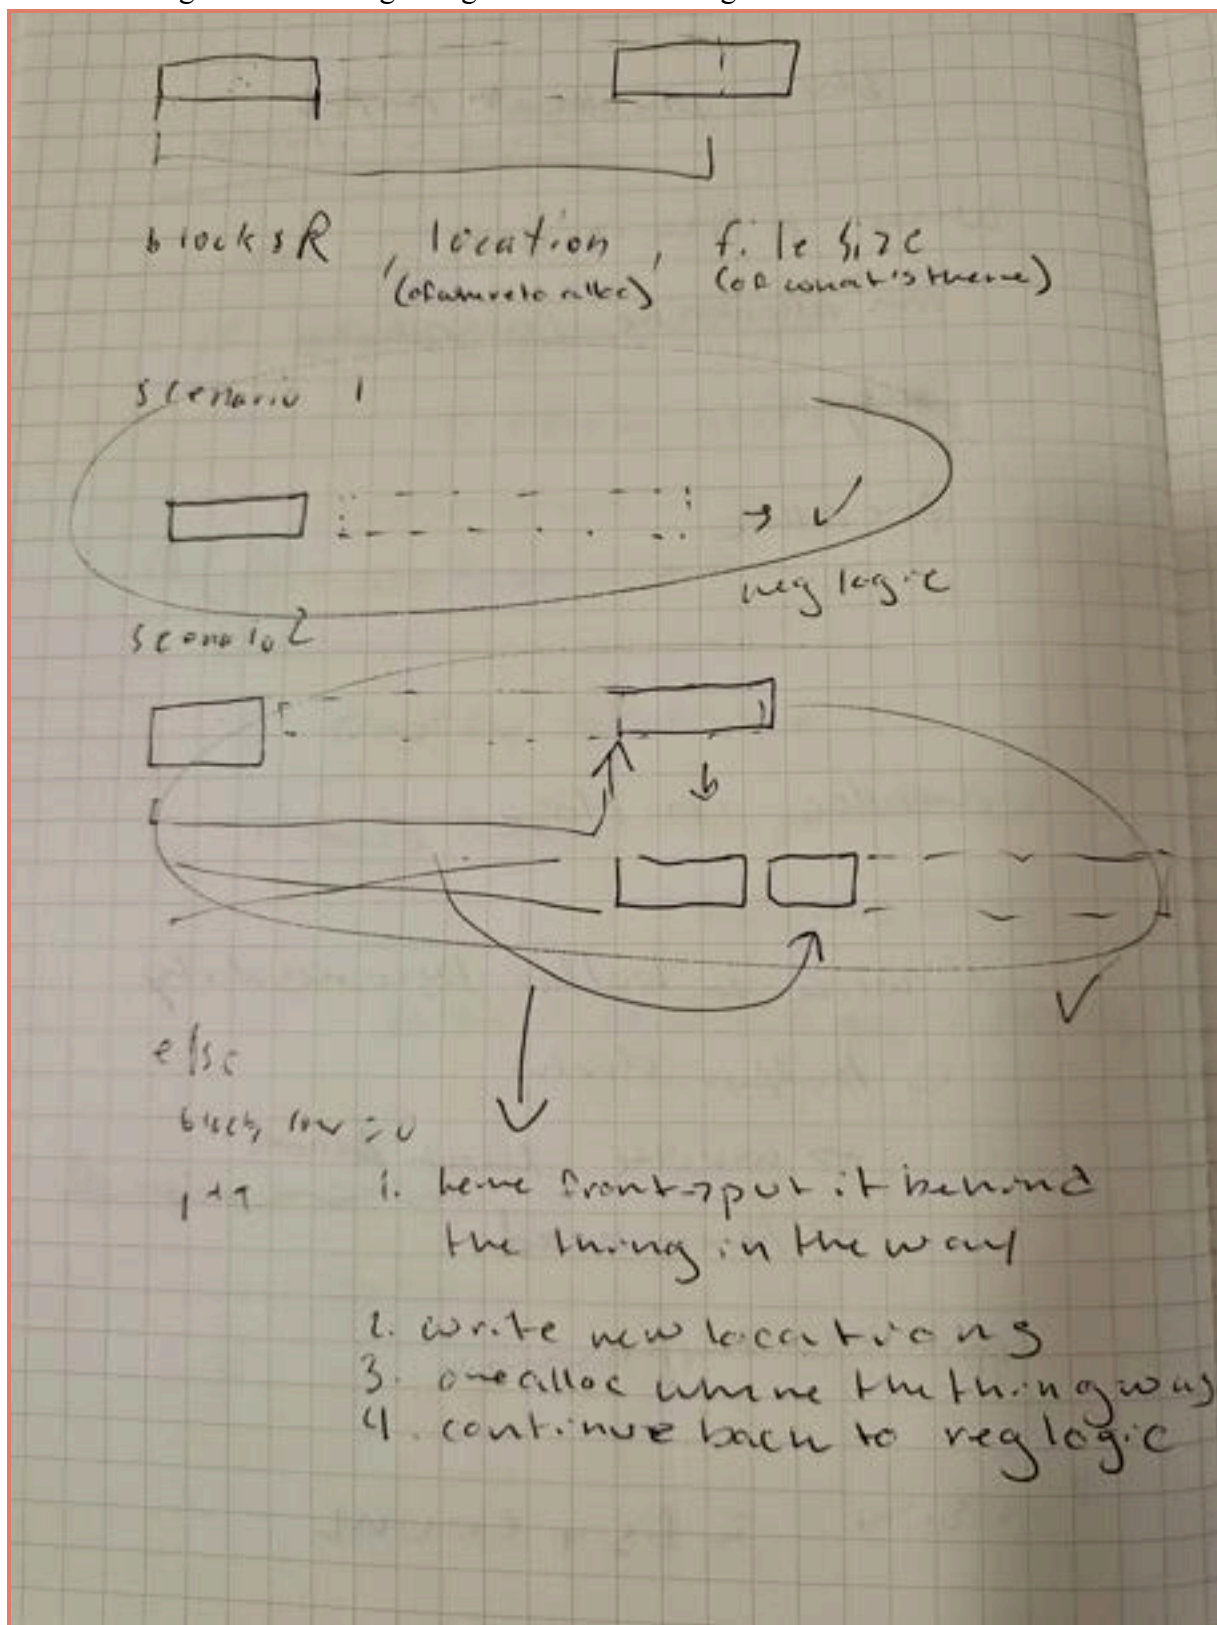 blocksR, location, file size
(of where to alloc) (of what's there)
scenario 1
→ ✓
reg logic
scenario 2
✓
else
1.
front → put it behind
the thing in the way
2. write new locations
3. alloc where the thing was
4. continue back to reg logic